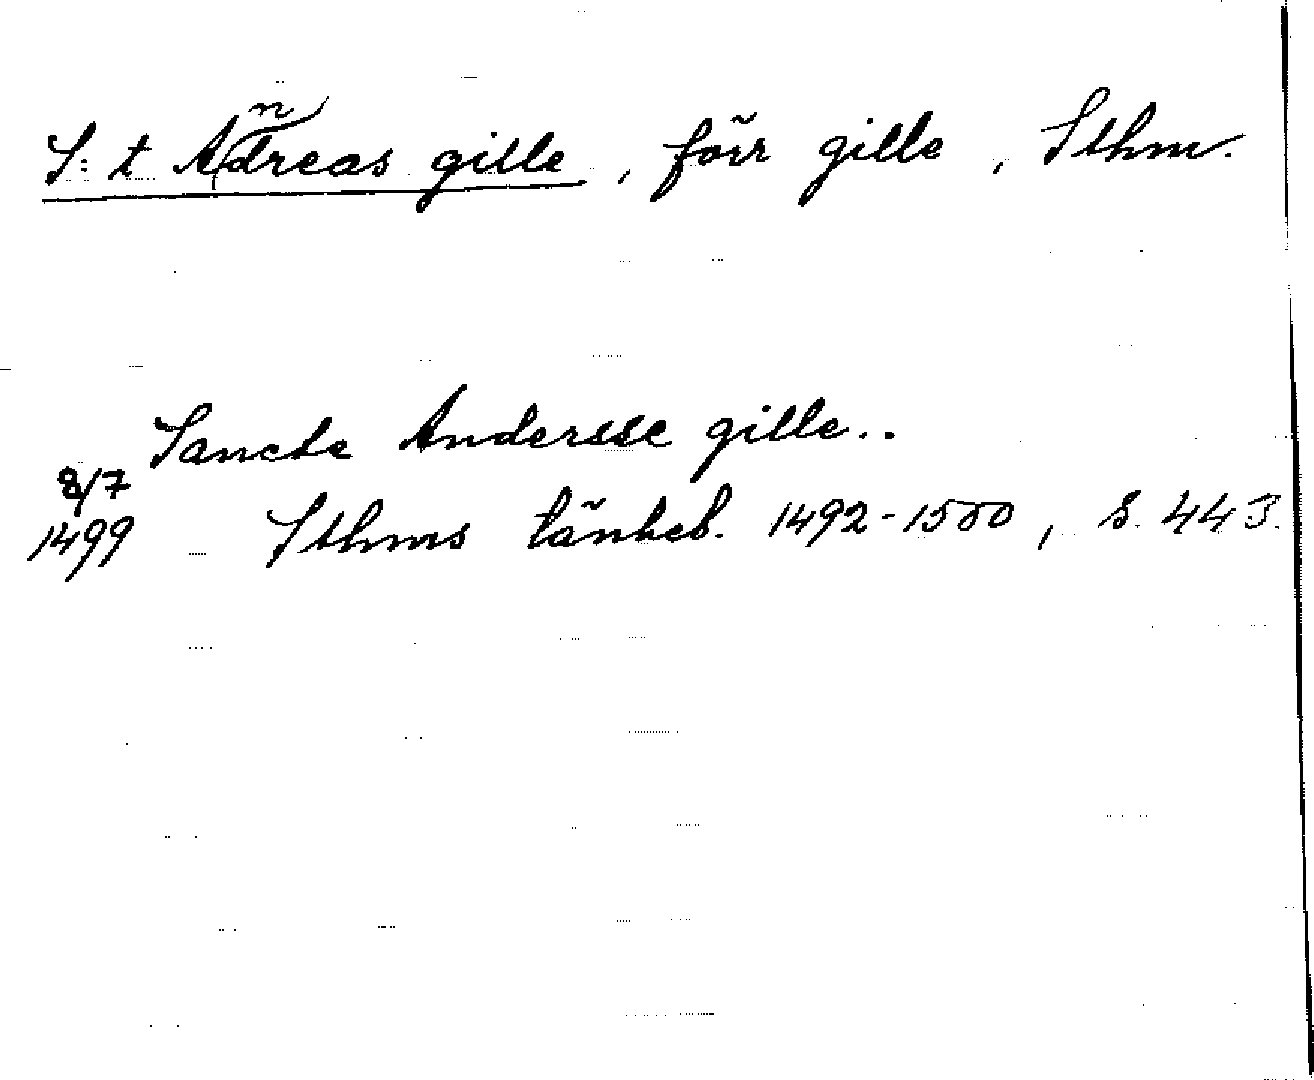 S:t Andreas gille, förr gille, Sthm.
Sancte Andersse gille..
8/7
1499 Sthms tänkeb. 1492-1500, s. 443.